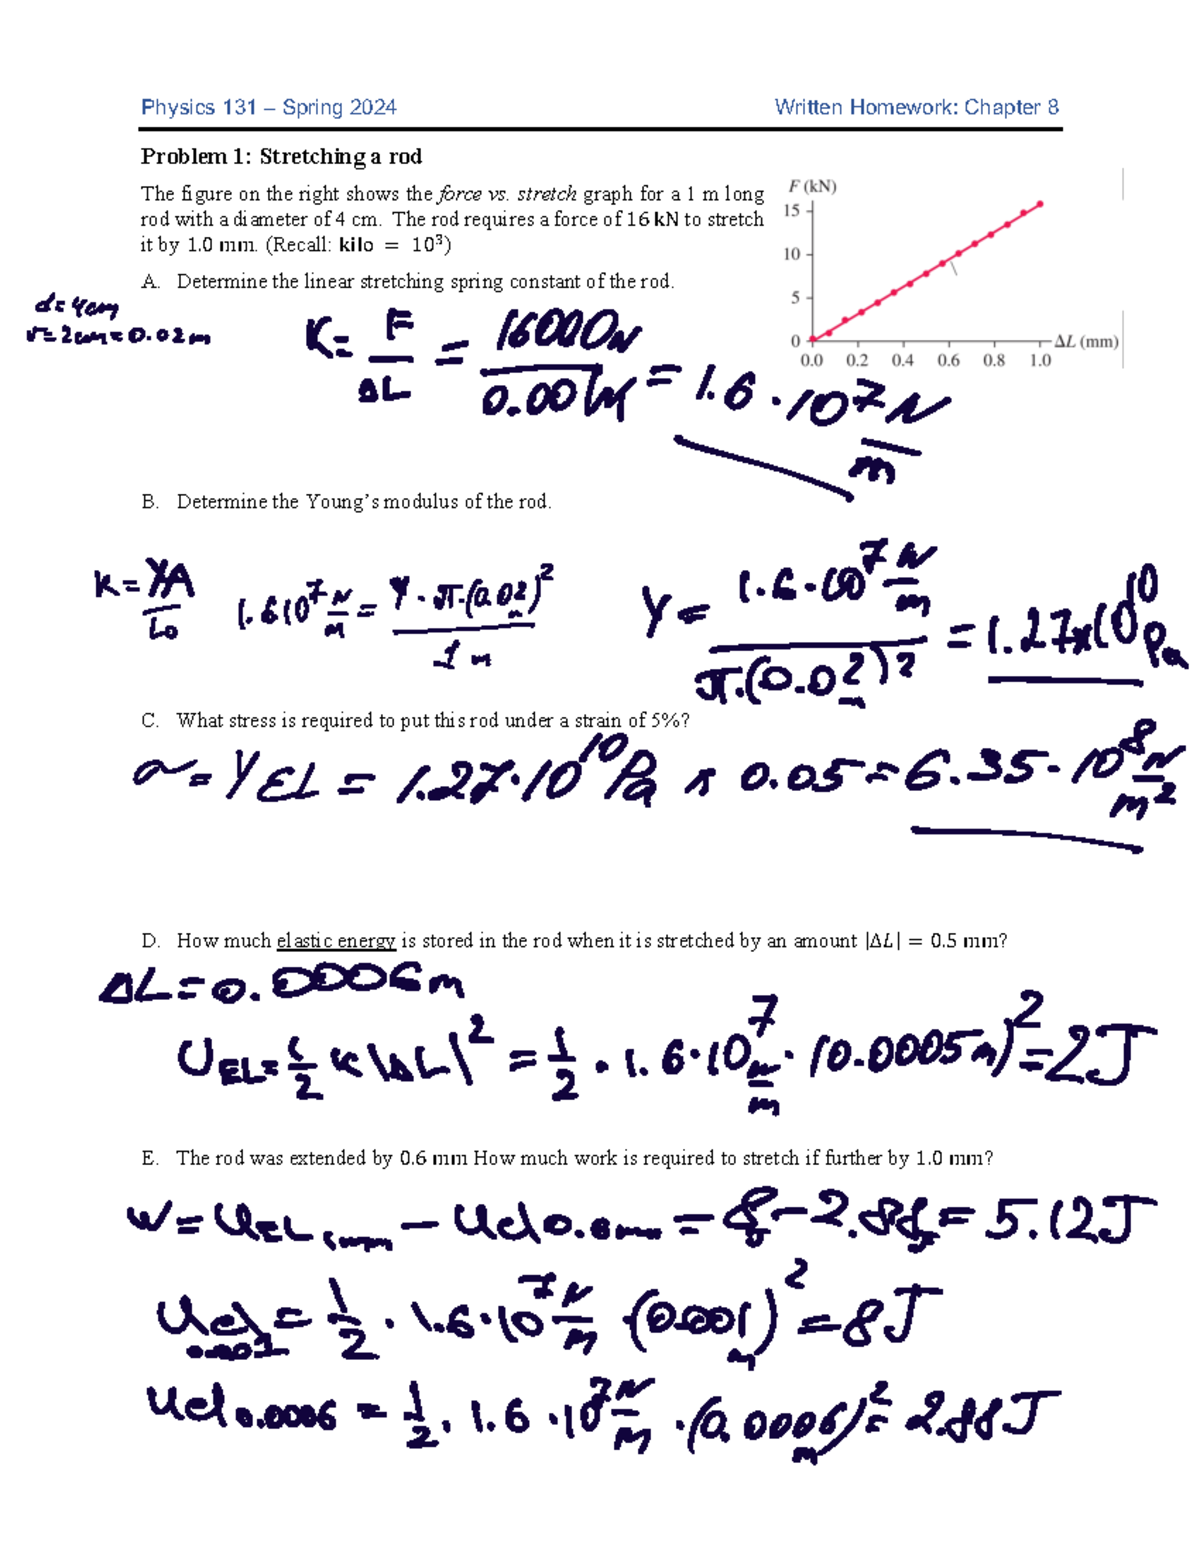 Physics 131 – Spring 2024 Written Homework: Chapter 8
Problem 1: Stretching a rod
The figure on the right shows the force vs. stretch graph for a 1 m long
rod with a diameter of 4 cm. The rod requires a force of 16 kN to stretch
it by 1.0 mm. (Recall: kilo = 10³)
F (kN)
15
10
5
0
0.0 0.2 0.4 0.6 0.8 1.0
ΔL (mm)
A. Determine the linear stretching spring constant of the rod.
d=4cm
r=2cm=0.02m
K= F/ΔL = 16000N/0.001m = 1.6·10⁷ N/m
B. Determine the Young's modulus of the rod.
K=YA/L₀
1.6·10⁷ N/m = Y·π·(0.02)²/1m
Y= 1.6·10⁷ N/m / π·(0.02)² = 1.27x10¹⁰ Pa
C. What stress is required to put this rod under a strain of 5%?
σ=YEL = 1.27·10¹⁰Pa x 0.05=6.35·10⁸ N/m²
D. How much elastic energy is stored in the rod when it is stretched by an amount |ΔL| = 0.5 mm?
ΔL=0.0006m
UEL=1/2 K|ΔL|² = 1/2 · 1.6·10⁷ N/m · (0.0005m)²=2J
E. The rod was extended by 0.6 mm How much work is required to stretch if further by 1.0 mm?
W=UEL 1mm – Uel0.6mm = 8–2.88J= 5.12J
Uel 0.001= 1/2 · 1.6·10⁷ N/m · (0.001m)² =8J
Uel 0.0006 = 1/2 · 1.6·10⁷ N/m · (0.0006m)²= 2.88J